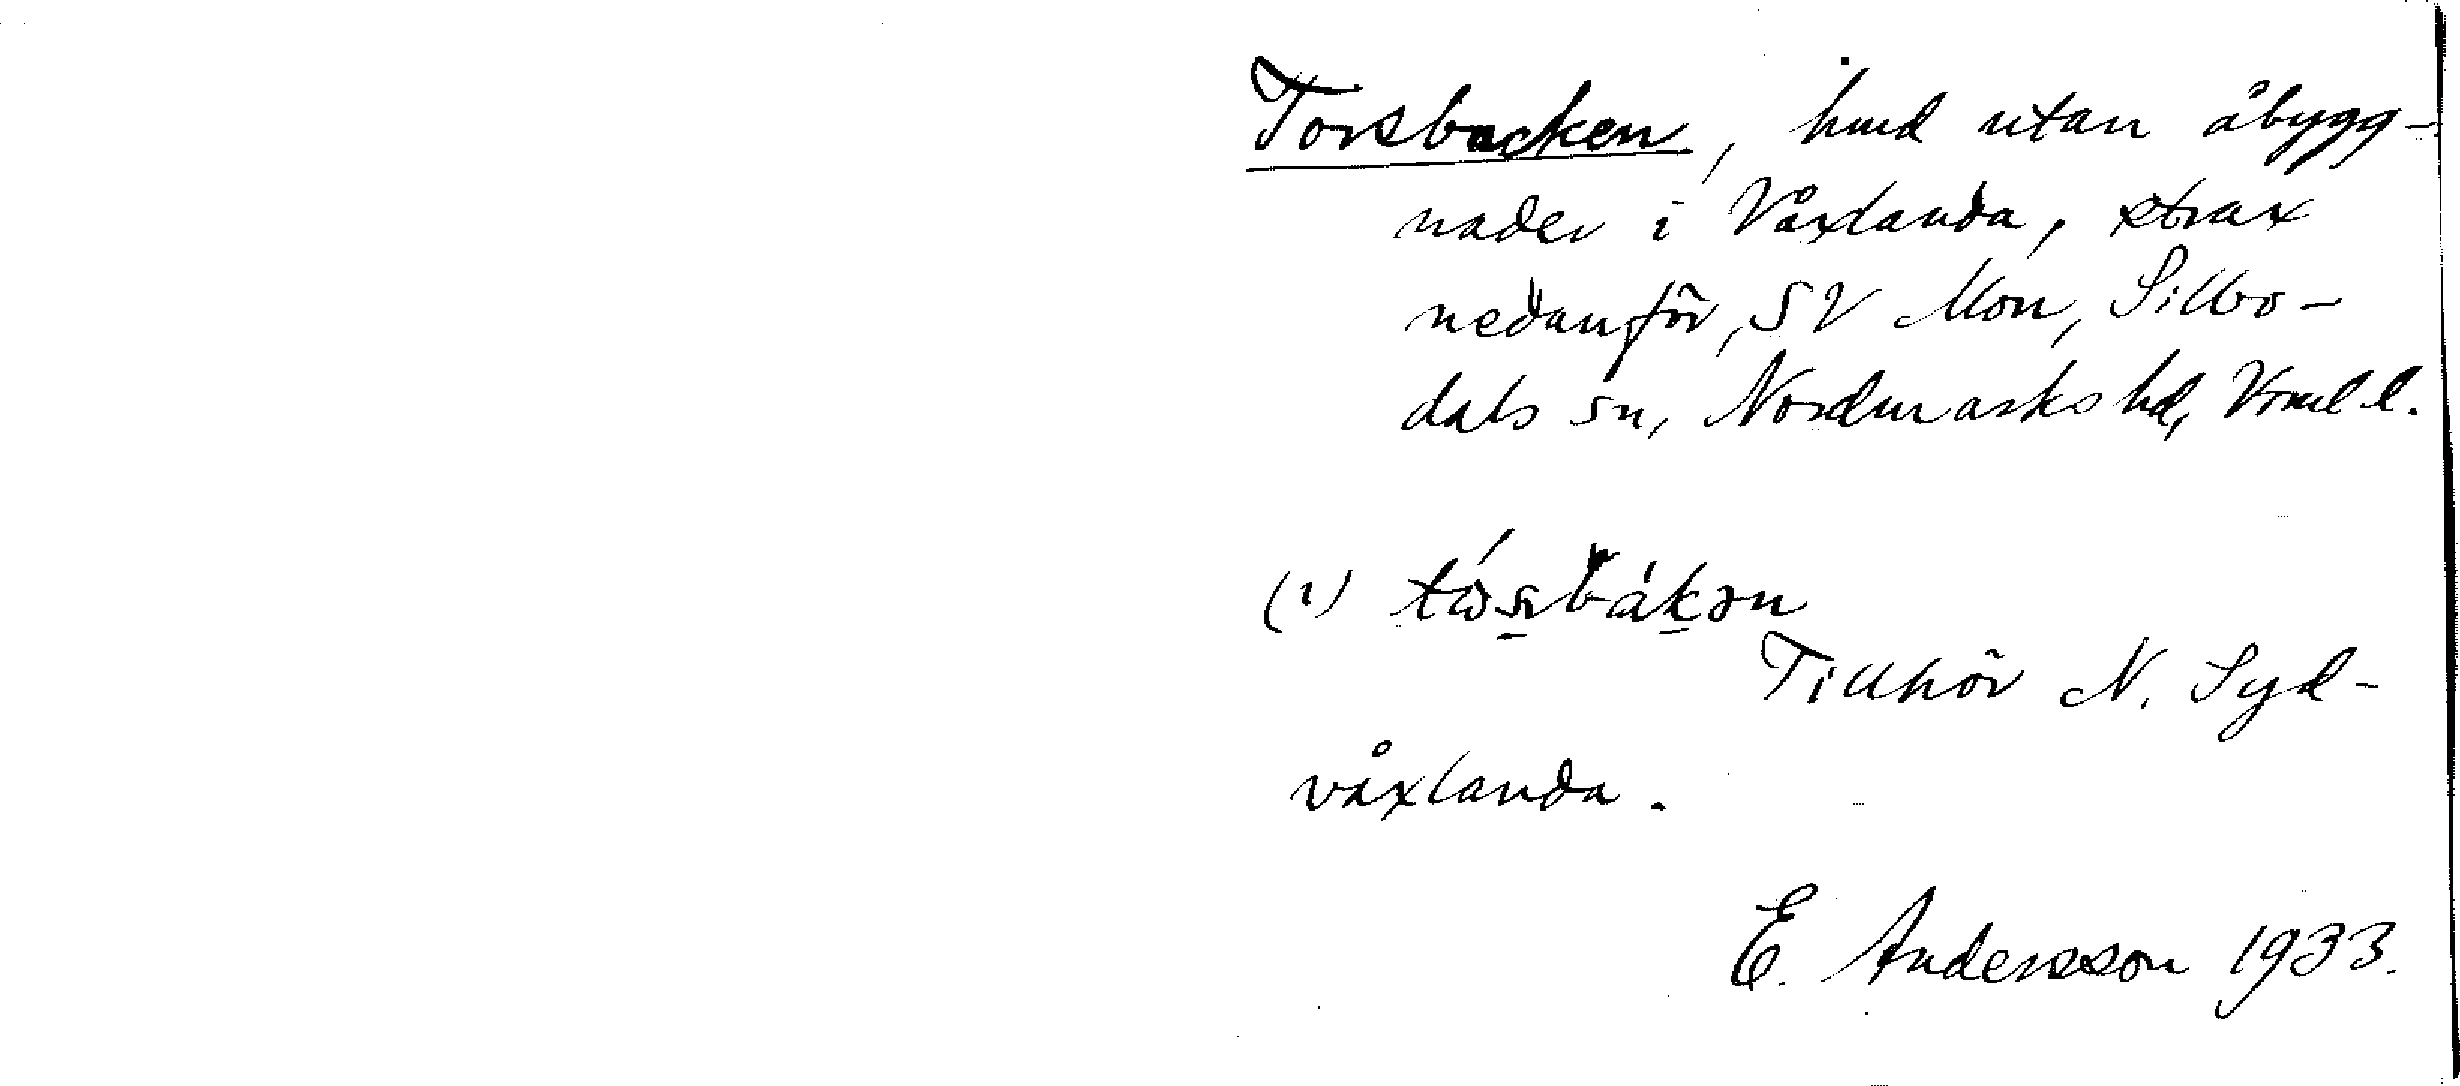 Torsbacken, hmd utan åbygg-
nader i Våxlanda, strax
nedanför, SV Mon, Sillbo-
dals sn, Nordmarks hd, Vrml. l.
(1)
Tillhör N. Syd-
våxlanda.
E. Andersson 1933.